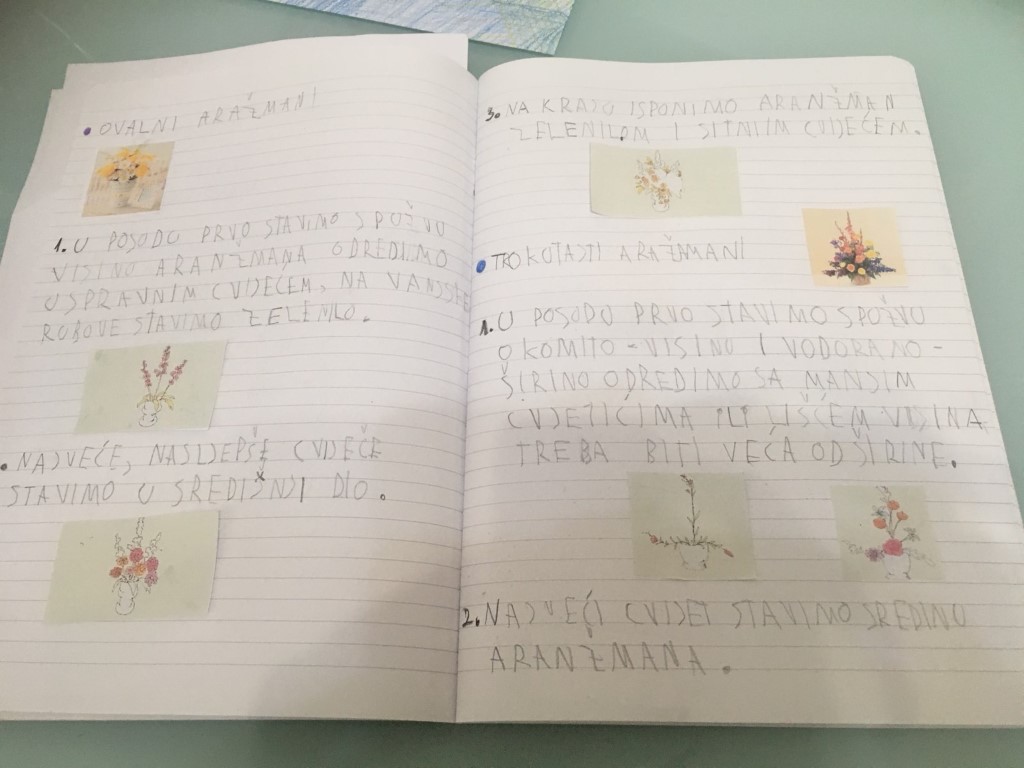 • OVALNI ARAŽMANI
1. U POSODU PRVO STAVIMO SPUŽVU
VISINO ARANŽMANA ODREDIMO
USPRAVNIM CVIJEĆEM, NA VANJSKE
ROBOVE STAVIMO ZELENILO.
• NAJVEĆE, NAJLJEPŠE CVIJEČE
STAVIMO U SREDIŠNJI DIO.
3. NA KRAJU ISPONIMO ARANŽMAN
ZELENILOM I SITNIIM CVIJEĆEM.
• TROKOTASTI ARAŽMANI
1. U POSODU PRVO STAVIMO SPOŽVU
OKOMITO - VISINO I VODORANO -
ŠIRINO ODREDIMO SA MANJIM
CVIJETIĆIMA ILI LIŠĆEM VISINA
TREBA BITI VEĆA OD ŠIRINE.
2. NAJVEĆI CVIJET STAVIMO SREDINU
ARANŽMANA.